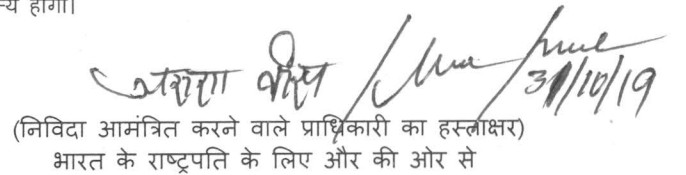 न्य होगा।
31/10/19
(निविदा आमंत्रित करने वाले प्राधिकारी का हस्ताक्षर)
भारत के राष्ट्रपति के लिए और की ओर से